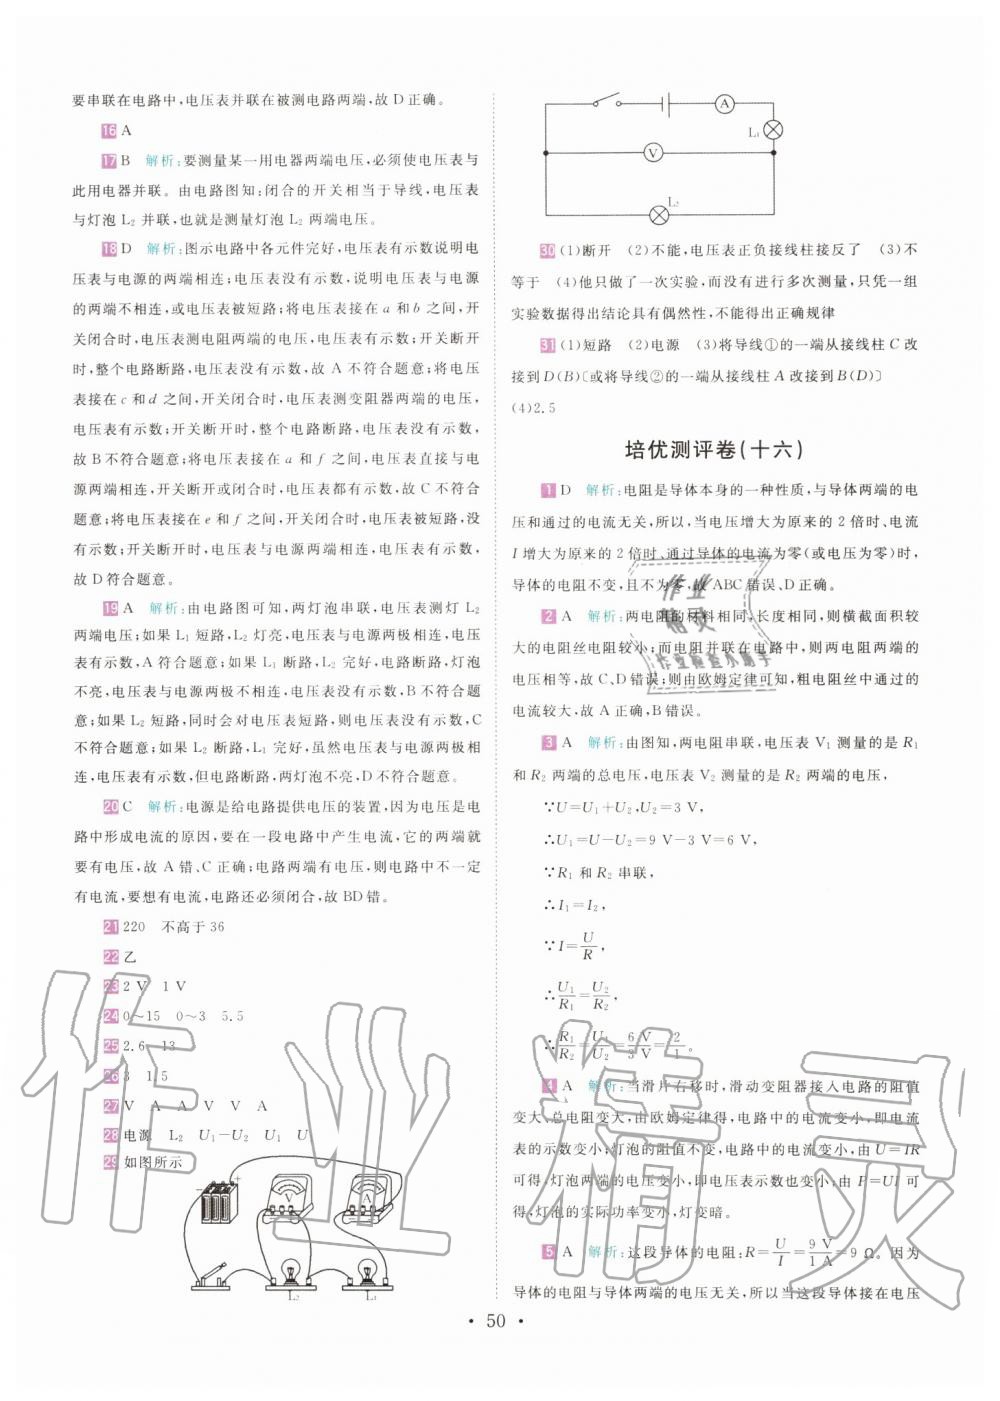 要串联在电路中,电压表并联在被测电路两端,故 D 正确。
16 A
17 B 解析:要测量某一用电器两端电压,必须使电压表与
此用电器并联。由电路图知:闭合的开关相当于导线,电压表
与灯泡 L2 并联,也就是测量灯泡 L2 两端电压。
18 D 解析:图示电路中各元件完好,电压表有示数说明电
压表与电源的两端相连;电压表没有示数,说明电压表与电源
的两端不相连,或电压表被短路;将电压表接在 a 和 b 之间,开
关闭合时,电压表测电阻两端的电压,电压表有示数;开关断开
时,整个电路断路,电压表没有示数,故 A 不符合题意;将电压
表接在 c 和 d 之间,开关闭合时,电压表测变阻器两端的电压,
电压表有示数;开关断开时,整个电路断路,电压表没有示数,
故 B 不符合题意;将电压表接在 a 和 f 之间,电压表直接与电
源两端相连,开关断开或闭合时,电压表都有示数,故 C 不符合
题意;将电压表接在 e 和 f 之间,开关闭合时,电压表被短路,没
有示数;开关断开时,电压表与电源两端相连,电压表有示数,
故 D 符合题意。
19 A 解析:由电路图可知,两灯泡串联,电压表测灯 L2
两端电压;如果 L1 短路,L2 灯亮,电压表与电源两极相连,电压
表有示数,A 符合题意;如果 L1 断路,L2 完好,电路断路,灯泡
不亮,电压表与电源两极不相连,电压表没有示数,B 不符合题
意;如果 L2 短路,同时会对电压表短路,则电压表没有示数,C
不符合题意;如果 L2 断路,L1 完好,虽然电压表与电源两极相
连,电压表有示数,但电路断路,两灯泡不亮,D 不符合题意。
20 C 解析:电源是给电路提供电压的装置,因为电压是电
路中形成电流的原因,要在一段电路中产生电流,它的两端就
要有电压,故 A 错、C 正确;电路两端有电压,则电路中不一定
有电流,要想有电流,电路还必须闭合,故 BD 错。
21 220 不高于 36
22 乙
23 2 V 1 V
24 0～15 0～3 5.5
25 2.6 13
26 3 1.5
27 V A A V V A
28 电源 L2 U1－U2 U1 U
29 如图所示
－ ＋
V
A
L2
L1
A
L1
V
L2
30 (1)断开 (2)不能,电压表正负接线柱接反了 (3)不
等于 (4)他只做了一次实验,而没有进行多次测量,只凭一组
实验数据得出结论具有偶然性,不能得出正确规律
31 (1)短路 (2)电源 (3)将导线①的一端从接线柱 C 改
接到 D(B)〔或将导线②的一端从接线柱 A 改接到 B(D)〕
(4)2.5
培优测评卷(十六)
1 D 解析:电阻是导体本身的一种性质,与导体两端的电
压和通过的电流无关,所以,当电压增大为原来的 2 倍时、电流
I 增大为原来的 2 倍时、通过导体的电流为零(或电压为零)时,
导体的电阻不变,且不为零,故 ABC 错误、D 正确。
2 A 解析:两电阻的材料相同,长度相同,则横截面积较
大的电阻丝电阻较小;而电阻并联在电路中,则两电阻两端的
电压相等,故 C、D 错误;则由欧姆定律可知,粗电阻丝中通过的
电流较大,故 A 正确,B 错误。
3 A 解析:由图知,两电阻串联,电压表 V1 测量的是 R1
和 R2 两端的总电压,电压表 V2 测量的是 R2 两端的电压,
∵U＝U1＋U2,U2＝3 V,
∴U1＝U－U2＝9 V－3 V＝6 V,
∵R1 和 R2 串联,
∴I1＝I2,
∵I＝U/R,
∴U1/R1＝U2/R2,
∴R1/R2＝U1/U2＝6 V/3 V＝2/1。
4 A 解析:当滑片右移时,滑动变阻器接入电路的阻值
变大、总电阻变大,由欧姆定律得,电路中的电流变小,即电流
表的示数变小;灯泡的阻值不变,电路中的电流变小,由 U＝IR
可得,灯泡两端的电压变小,即电压表示数也变小;由 P＝UI 可
得,灯泡的实际功率变小,灯变暗。
5 A 解析:这段导体的电阻:R＝U/I＝9 V/1 A＝9 Ω。因为
导体的电阻与导体两端的电压无关,所以当这段导体接在电压
• 50 •
作业精灵
作业精灵
作业检查小助手